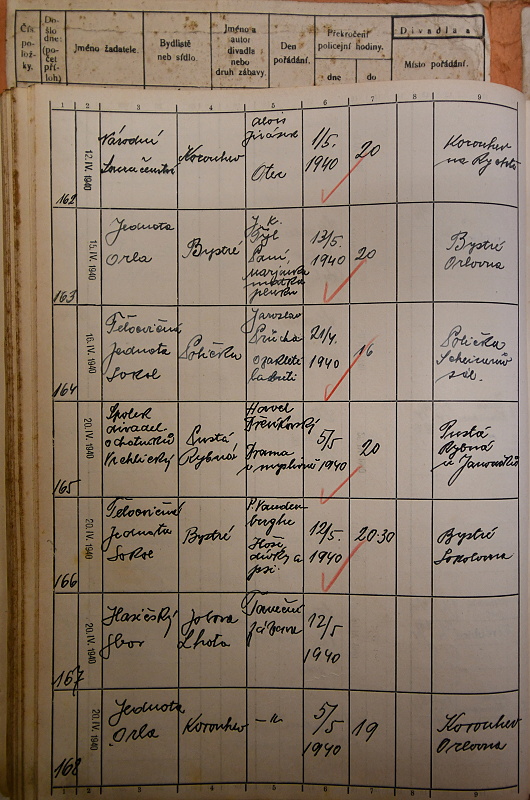 Čís. polož- ky.
Do- šlo dne: (po- čet pří- loh)
Jméno žadatele.
Bydliště neb sídlo.
Jméno a autor divadla nebo druh zábavy.
Den pořádání.
Překročení policejní hodiny.
dne
do
Divadla a
Místo pořádání.
1 2 3 4 5 6 7 8 9
162
12. IV. 1940
Národní
Souručenství
Korouhev
Alois
Jirásek
Otec
1/5.
1940
20
Korouhev
na Rychtě
163
15. IV. 1940
Jednota
Orla
Bystré
J. K.
Tyl
Paní
Marjánka
matka
pluku
13/5.
1940
20
Bystré
Orlovna
164
16. IV. 1940
Tělocvičná
Jednota
Sokol
Polička
Jaroslav
Průcha
21/4.
1940
16
Polička
sál.
165
20. IV. 1940
Spolek
divadel.
ochotníků
Vrchlický
Pustá
Rybná
Havel
Drama
v myslivně
5/5
1940
20
Pustá
Rybná
u Janoušků
166
20. IV. 1940
Tělocvičná
Jednota
Sokol
Bystré
Vanden-
berghe
Hoši,
dívky a
psi.
12/5.
1940
20·30
Bystré
Sokolovna
167
20. IV. 1940
Hasičský
sbor
Lhota
Taneční
zábava
12/5
1940
168
20. IV. 1940
Jednota
Orla
Korouhev
–"–
5/5
1940
19
Korouhev
Orlovna
1 2 3 4 5 6 7 8 9